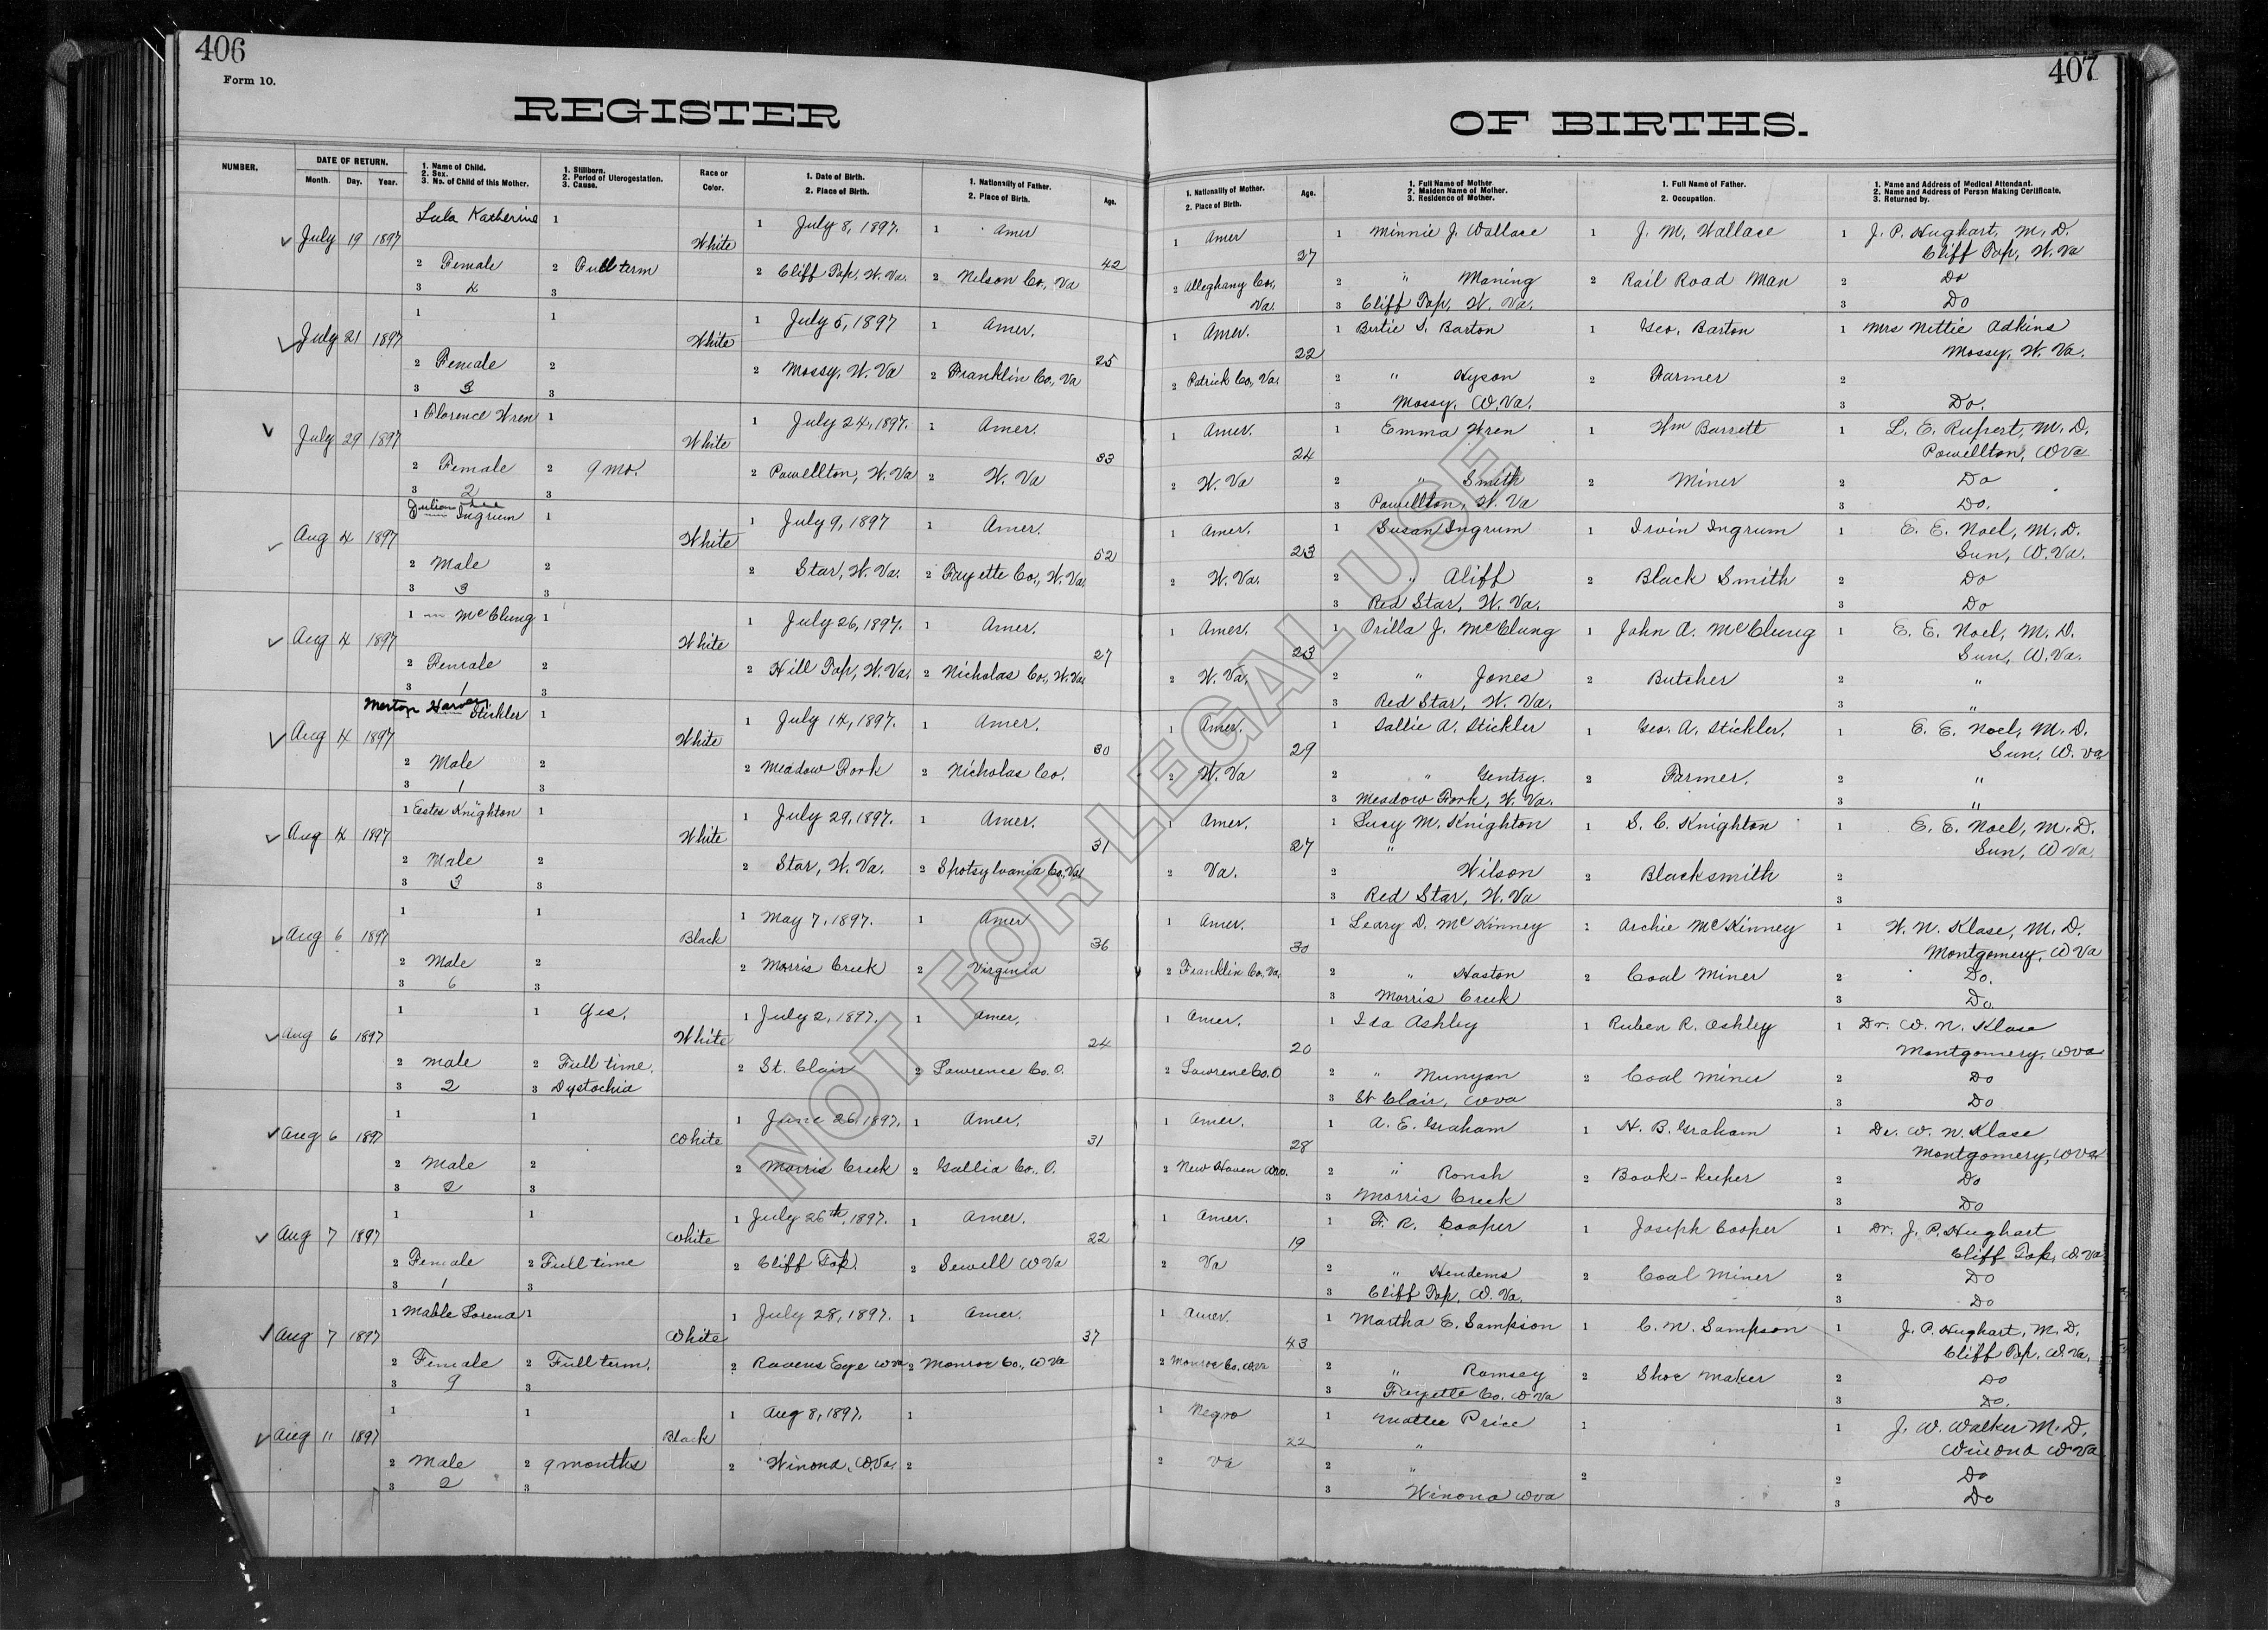 406
407
Form 10.
REGISTER OF BIRTHS.
NUMBER.
DATE OF RETURN.
Month. Day. Year.
1. Name of Child.
2. Sex.
3. No. of Child of this Mother.
1. Stillborn.
2. Period of Uterogestation.
3. Cause.
Race or
Color.
1. Date of Birth.
2. Place of Birth.
1. Nationality of Father.
2. Place of Birth.
Age.
1. Nationality of Mother.
2. Place of Birth.
Age.
1. Full Name of Mother
2. Maiden Name of Mother.
3. Residence of Mother.
1. Full Name of Father.
2. Occupation.
1. Name and Address of Medical Attendant.
2. Name and Address of Person Making Certificate.
3. Returned by.
Lula Katherine 1 1 July 8, 1897. 1 Amer 1 Amer 1 Minnie J. Wallace 1 J. M. Wallace 1 J. P. Hughart, M. D.
July 19 1897 White 42 27 Cliff Top, W. Va
2 Female 2 Full term 2 Cliff Top, W. Va. 2 Nelson Co., Va 2 Alleghany Co., Va. 2 " Maning 2 Rail Road Man 2 Do
3 4 3 3 Cliff Top, W. Va. 3 Do
1 1 1 July 5, 1897 1 Amer. 1 Amer. 1 Bertie S. Barton 1 Geo. Barton 1 Mrs Nettie Adkins
July 21 1897 White 25 22 Mossy, W. Va.
2 Female 2 2 Mossy, W. Va 2 Franklin Co., Va 2 Patrick Co., Va. 2 " Hyson 2 Farmer 2
3 3 3 3 Mossy, W. Va. 3 Do.
1 Clorence Wren 1 1 July 24, 1897. 1 Amer. 1 Amer. 1 Emma Wren 1 Wm Barrett 1 L. E. Rupert, M. D.
July 29 1897 White 33 24 Powellton, W Va
2 Female 2 9 mo. 2 Powellton, W. Va 2 W. Va 2 W. Va 2 " Smith 2 Miner 2 Do
3 2 3 3 Powellton, W. Va 3 Do.
Julian Lee
Ingrum 1 1 July 9, 1897 1 Amer. 1 Amer. 1 Susan Ingrum 1 Irvin Ingrum 1 E. E. Noel, M. D.
Aug 4 1897 White 52 23 Sun, W. Va.
2 Male 2 2 Star, W. Va. 2 Fayette Co., W. Va. 2 W. Va. 2 " Aliff 2 Black Smith 2 Do
3 3 3 3 Red Star, W. Va. 3 Do
1 — McClung 1 1 July 26, 1897. 1 Amer. 1 Amer. 1 Orilla J. McClung 1 John A. McClung 1 E. E. Noel, M. D.
Aug 4 1897 White 27 23 Sun, W. Va.
2 Female 2 2 Hill Top, W. Va. 2 Nicholas Co., W. Va. 2 W. Va. 2 " Jones 2 Butcher 2 "
3 1 3 3 Red Star, W. Va. 3 "
Merton Harvey
Stickler 1 1 July 14, 1897. 1 Amer. 1 Amer. 1 Sallie A. Stickler 1 Geo. A. Stickler. 1 E. E. Noel, M. D.
Aug 4 1897 White 30 29 Sun, W. Va
2 Male 2 2 Meadow Fork 2 Nicholas Co. 2 W. Va 2 " Gentry. 2 Farmer. 2 "
3 1 3 3 Meadow Fork, W. Va. 3 "
1 Estes Knighton 1 1 July 29, 1897. 1 Amer. 1 Amer. 1 Lucy M. Knighton 1 S. C. Knighton 1 E. E. Noel, M. D.
Aug 4 1897 White 31 27 " Sun, W Va.
2 Male 2 2 Star, W. Va. 2 Spotsylvania Co., Va. 2 Va. 2 Wilson 2 Blacksmith 2
3 3 3 3 Red Star, W. Va 3
1 1 1 May 7, 1897. 1 Amer 1 Amer. 1 Leary D. McKinney 1 Archie McKinney 1 W. N. Klase, M. D.
Aug 6 1897 Black 36 30 Montgomery, W Va
2 Male 2 2 Morris Creek 2 Virginia 2 Franklin Co. Va. 2 " Haston 2 Coal Miner 2 Do.
3 6 3 3 Morris Creek 3 Do
1 1 Yes. 1 July 2, 1897. 1 Amer. 1 Amer. 1 Ida Ashley 1 Ruben R. Ashley 1 Dr. W. N. Klase
Aug 6 1897 White 24 20 Montgomery, W Va
2 male 2 Full time. 2 St. Clair 2 Lawrence Co. O. 2 Lawrene Co. O 2 " Munyan 2 Coal Miner 2 Do
3 2 3 Dystochia 3 St Clair, W Va 3 Do
1 1 1 June 26, 1897. 1 Amer. 1 Amer. 1 A. E. Graham 1 H. B. Graham 1 Dr. W. N. Klase
Aug 6 1897 White 31 28 Montgomery, W Va
2 Male 2 2 Morris Creek 2 Gallia Co., O. 2 New Haven 2 " Roush 2 Book-keeper 2 Do
3 2 3 3 Morris Creek 3 Do
1 1 1 July 26th, 1897. 1 Amer. 1 Amer. 1 F. R. Cooper 1 Joseph Cooper 1 Dr. J. P. Hughart
Aug 7 1897 White 22 19 Cliff Top, W. Va
2 Female 2 Full time 2 Cliff Top. 2 Sewell W Va 2 Va 2 " Hendems 2 Coal Miner 2 Do
3 1 3 3 Cliff Top, W. Va. 3 Do
1 Mable Lorena 1 1 July 28, 1897. 1 Amer. 1 Amer. 1 Martha E. Sampsion 1 C. W. Sampson 1 J. P. Hughart, M. D.
Aug 7 1897 White 37 43 Cliff Top, W. Va.
2 Female 2 Full term. 2 Ravens Eye W Va 2 Monroe Co., W Va 2 Monroe Co. W Va 2 " Ramsey 2 Shoe Maker 2 Do
3 9 3 3 Fayette Co. W Va 3 Do.
1 1 1 Aug 8, 1897. 1 1 Negro 1 Mattie Price 1 1 J. W. Walker M. D.
Aug 11 1897 Black 22 " Winona W Va
2 Male 2 9 months 2 Winona, W. Va. 2 2 Va 2 " 2 2 Do
3 2 3 3 Winona W Va 3 Do
NOT FOR LEGAL USE